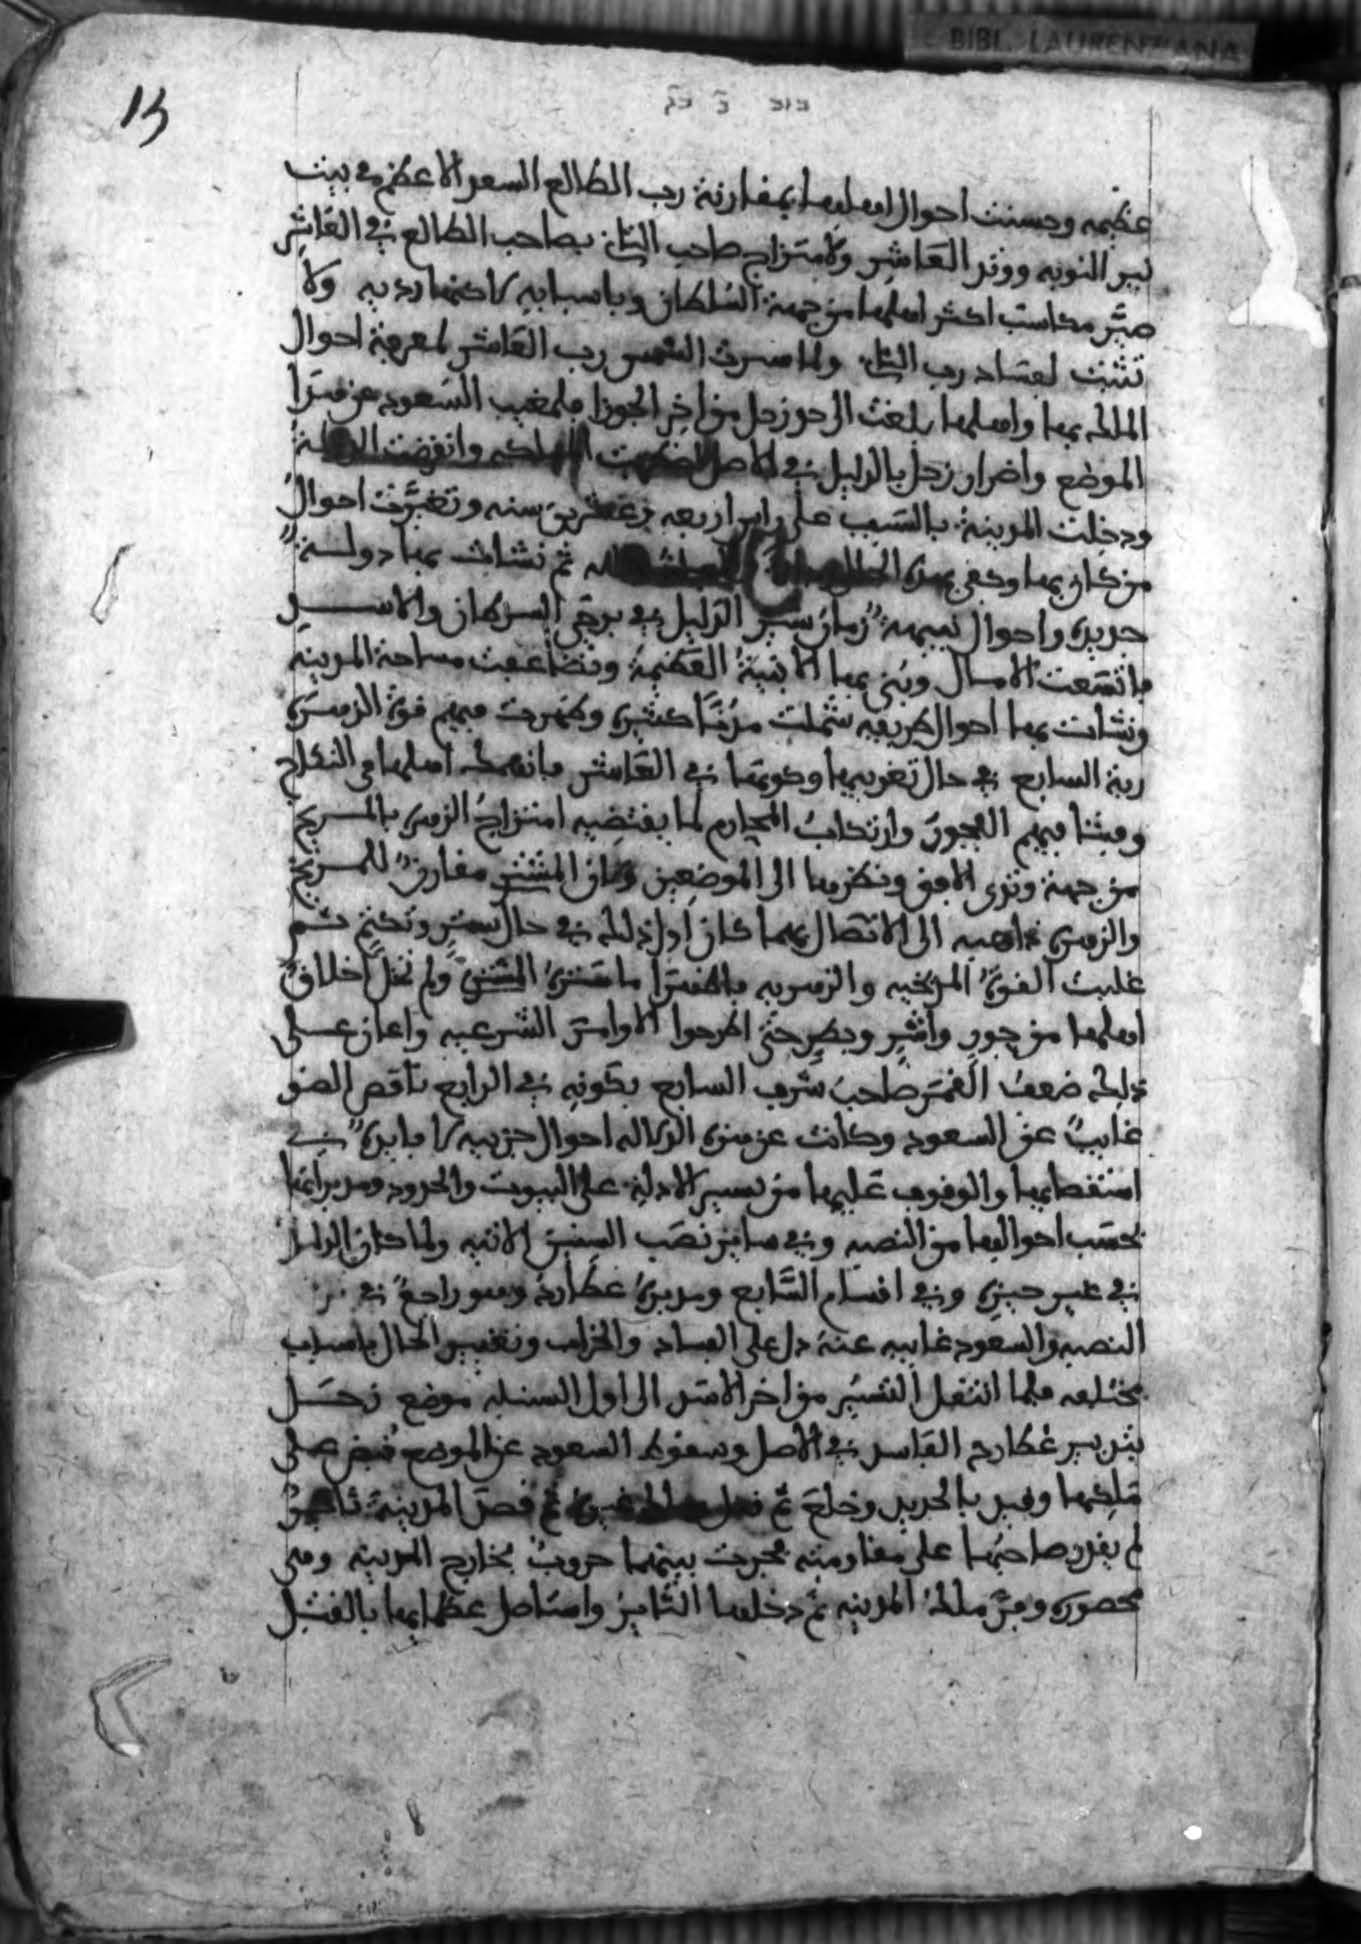 BIBL. LAURENZIANA
13
عظيمه وحسنت احوال اهلها بمقارنة رب الطالع السعد الاعظم في بيت
نير النوبه ووتد العاشر ولامتزاج صاحب الثاني بصاحب الطالع في العاشر
صير مكاسب اكثر اهلها من جهة السلطان وباسبابه لاكنها رديه ولا
تثبت لفساد رب الثاني ولما سيرت الشمس رب العاشر لمعرفة احوال
الملك بها واهلها بلغت الى حد زحل من اخر الجوزا فلمغيب السعود عن هذا
الموضع واضرار زحل بالدليل في الاصل وانقرضت
ودخلت المدينة بالسيف على راس اربعه وعشرين سنه وتغيرت احوال
من كان بها وكفى بهذه ثم نشات بها دولة
جديدة واحوال نبيهة زمان سير الدليل في برجي السرطان والاسد
فاتسعت الامال وبني بها الابنية العظيمة وتضاعفت مساحة المدينة
ونشات بها احوال طريفه شملت مدنا كثيرة وظهرت فيهم قوة الزهرة
ربة السابع في حال تغريبها وكونها في العاشر فانهمك اهلها في النكاح
وفشا فيهم الفجور وارتكاب المحارم لما يقتضيه امتزاج الزهرة بالمريخ
من جهة وتدي الافق ونظرها الى الموضعين وكان المشتري مقارن للمريخ
والزهرة ذاهبه الى الاتصال بهما كان اول ذلك في حال ستر وتكتم ثم
غلبت القوة المريخيه والزهريه فاظهرا ما ستره المشتري ولم تخل اخلاق
اهلها من جور واشر وبطر حتى اطرحوا الاوامر الشرعيه واعان على
ذلك ضعف القمر صاحب شرف السابع بكونه في الرابع ناقص الضو
غايب عن السعود وكانت عن هذه الدلاله احوال جزييه لا فايدة في
استقصايها والوقوف عليها من تسيير الادلة على البيوت والحدود ومدبراتها
بحسب احوالها من النصبه وفي ساير نصب السنين الاتيه ولما كان الدليل
في غير حيزه وفي اقسام السابع ومدبره عطارد وهو راجع في
النصبه والسعود غايبه عنه دل على الفساد والخراب وتغيير الحال باسباب
مختلفه فلما انتقل التسيير من اخر الاسد الى اول السنبله موضع زحل
بتدبير عطارد الفاسد في الاصل وسقوط السعود عن الموضع قبض على
ملكها وقيد بالحديد وخلع ثم غيره ثم قصد المدينة ثاير
لم يقدر صاحبها على مقاومته فجرت بينهما حروب بخارج المدينه وهي
محصورة وفر ملك المدينه ثم دخلها الثاير واستاصل عظمايها بالقتل